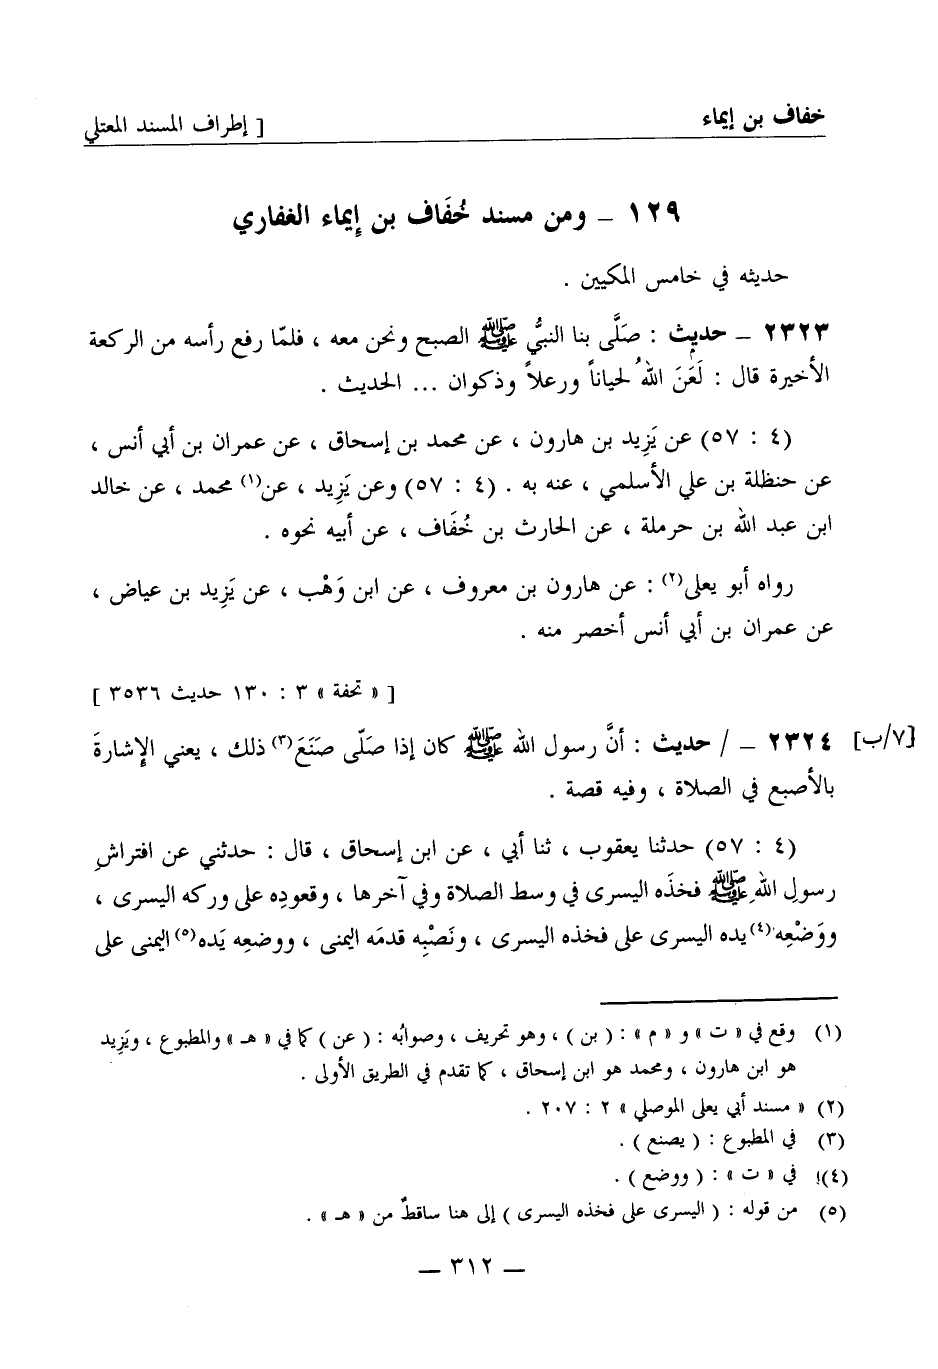 خفاف بن إيماء
[ إطراف المسند المعتلي
١٢٩ - ومن مسند خُفَاف بن إيماء الغفاري
حديثه في خامس المكيين .
٢٣٢٣ - حديث : صَلَّى بنا النبيُّ ﷺ الصبح ونحن معه ، فلمّا رفع رأسه من الركعة
الأخيرة قال : لَعَنَ اللهُ لحياناً ورعلاً وذكوان ... الحديث .
(٤ : ٥٧) عن يَزِيد بن هارون ، عن محمد بن إسحاق ، عن عمران بن أبي أنس ،
عن حنظلة بن علي الأسلمي ، عنه به . (٤ : ٥٧) وعن يَزِيد ، عن(١) محمد ، عن خالد
ابن عبد الله بن حرملة ، عن الحارث بن خُفَاف ، عن أبيه نحوه .
رواه أبو يعلى(٢) : عن هارون بن معروف ، عن ابن وَهْب ، عن يَزِيد بن عياض ،
عن عمران بن أبي أنس أخصر منه .
[ « تحفة » ٣ : ١٣٠ حديث ٣٥٣٦ ]
[٧/ب] ٢٣٢٤ - / حديث : أنَّ رسول الله ﷺ كان إذا صَلّى صَنَعَ(٣) ذلك ، يعني الإشارةَ
بالأصبع في الصلاة ، وفيه قصة .
(٤ : ٥٧) حدثنا يعقوب ، ثنا أبي ، عن ابن إسحاق ، قال : حدثني عن افتراشِ
رسولِ اللهِ ﷺ فخذَه اليسرى في وسط الصلاة وفي آخرها ، وقعودِه على وركه اليسرى ،
ووَضْعِه(٤) يده اليسرى على فخذه اليسرى ، ونَصْبِه قدمَه اليمنى ، ووضعِه يَده(٥) اليمنى على
(١) وقع في « ت » و « م » : ( بن ) ، وهو تحريف ، وصوابُه : ( عن ) كما في « هـ » والمطبوع ، ويَزِيد
هو ابن هارون ، ومحمد هو ابن إسحاق ، كما تقدم في الطريق الأولى .
(٢) « مسند أبي يعلى الموصلي » ٢ : ٢٠٧ .
(٣) في المطبوع : ( يصنع ) .
(٤) في « ت » : ( ووضع ) .
(٥) من قوله : ( اليسرى على فخذه اليسرى ) إلى هنا ساقطٌ من « هـ » .
- ٣١٢ -